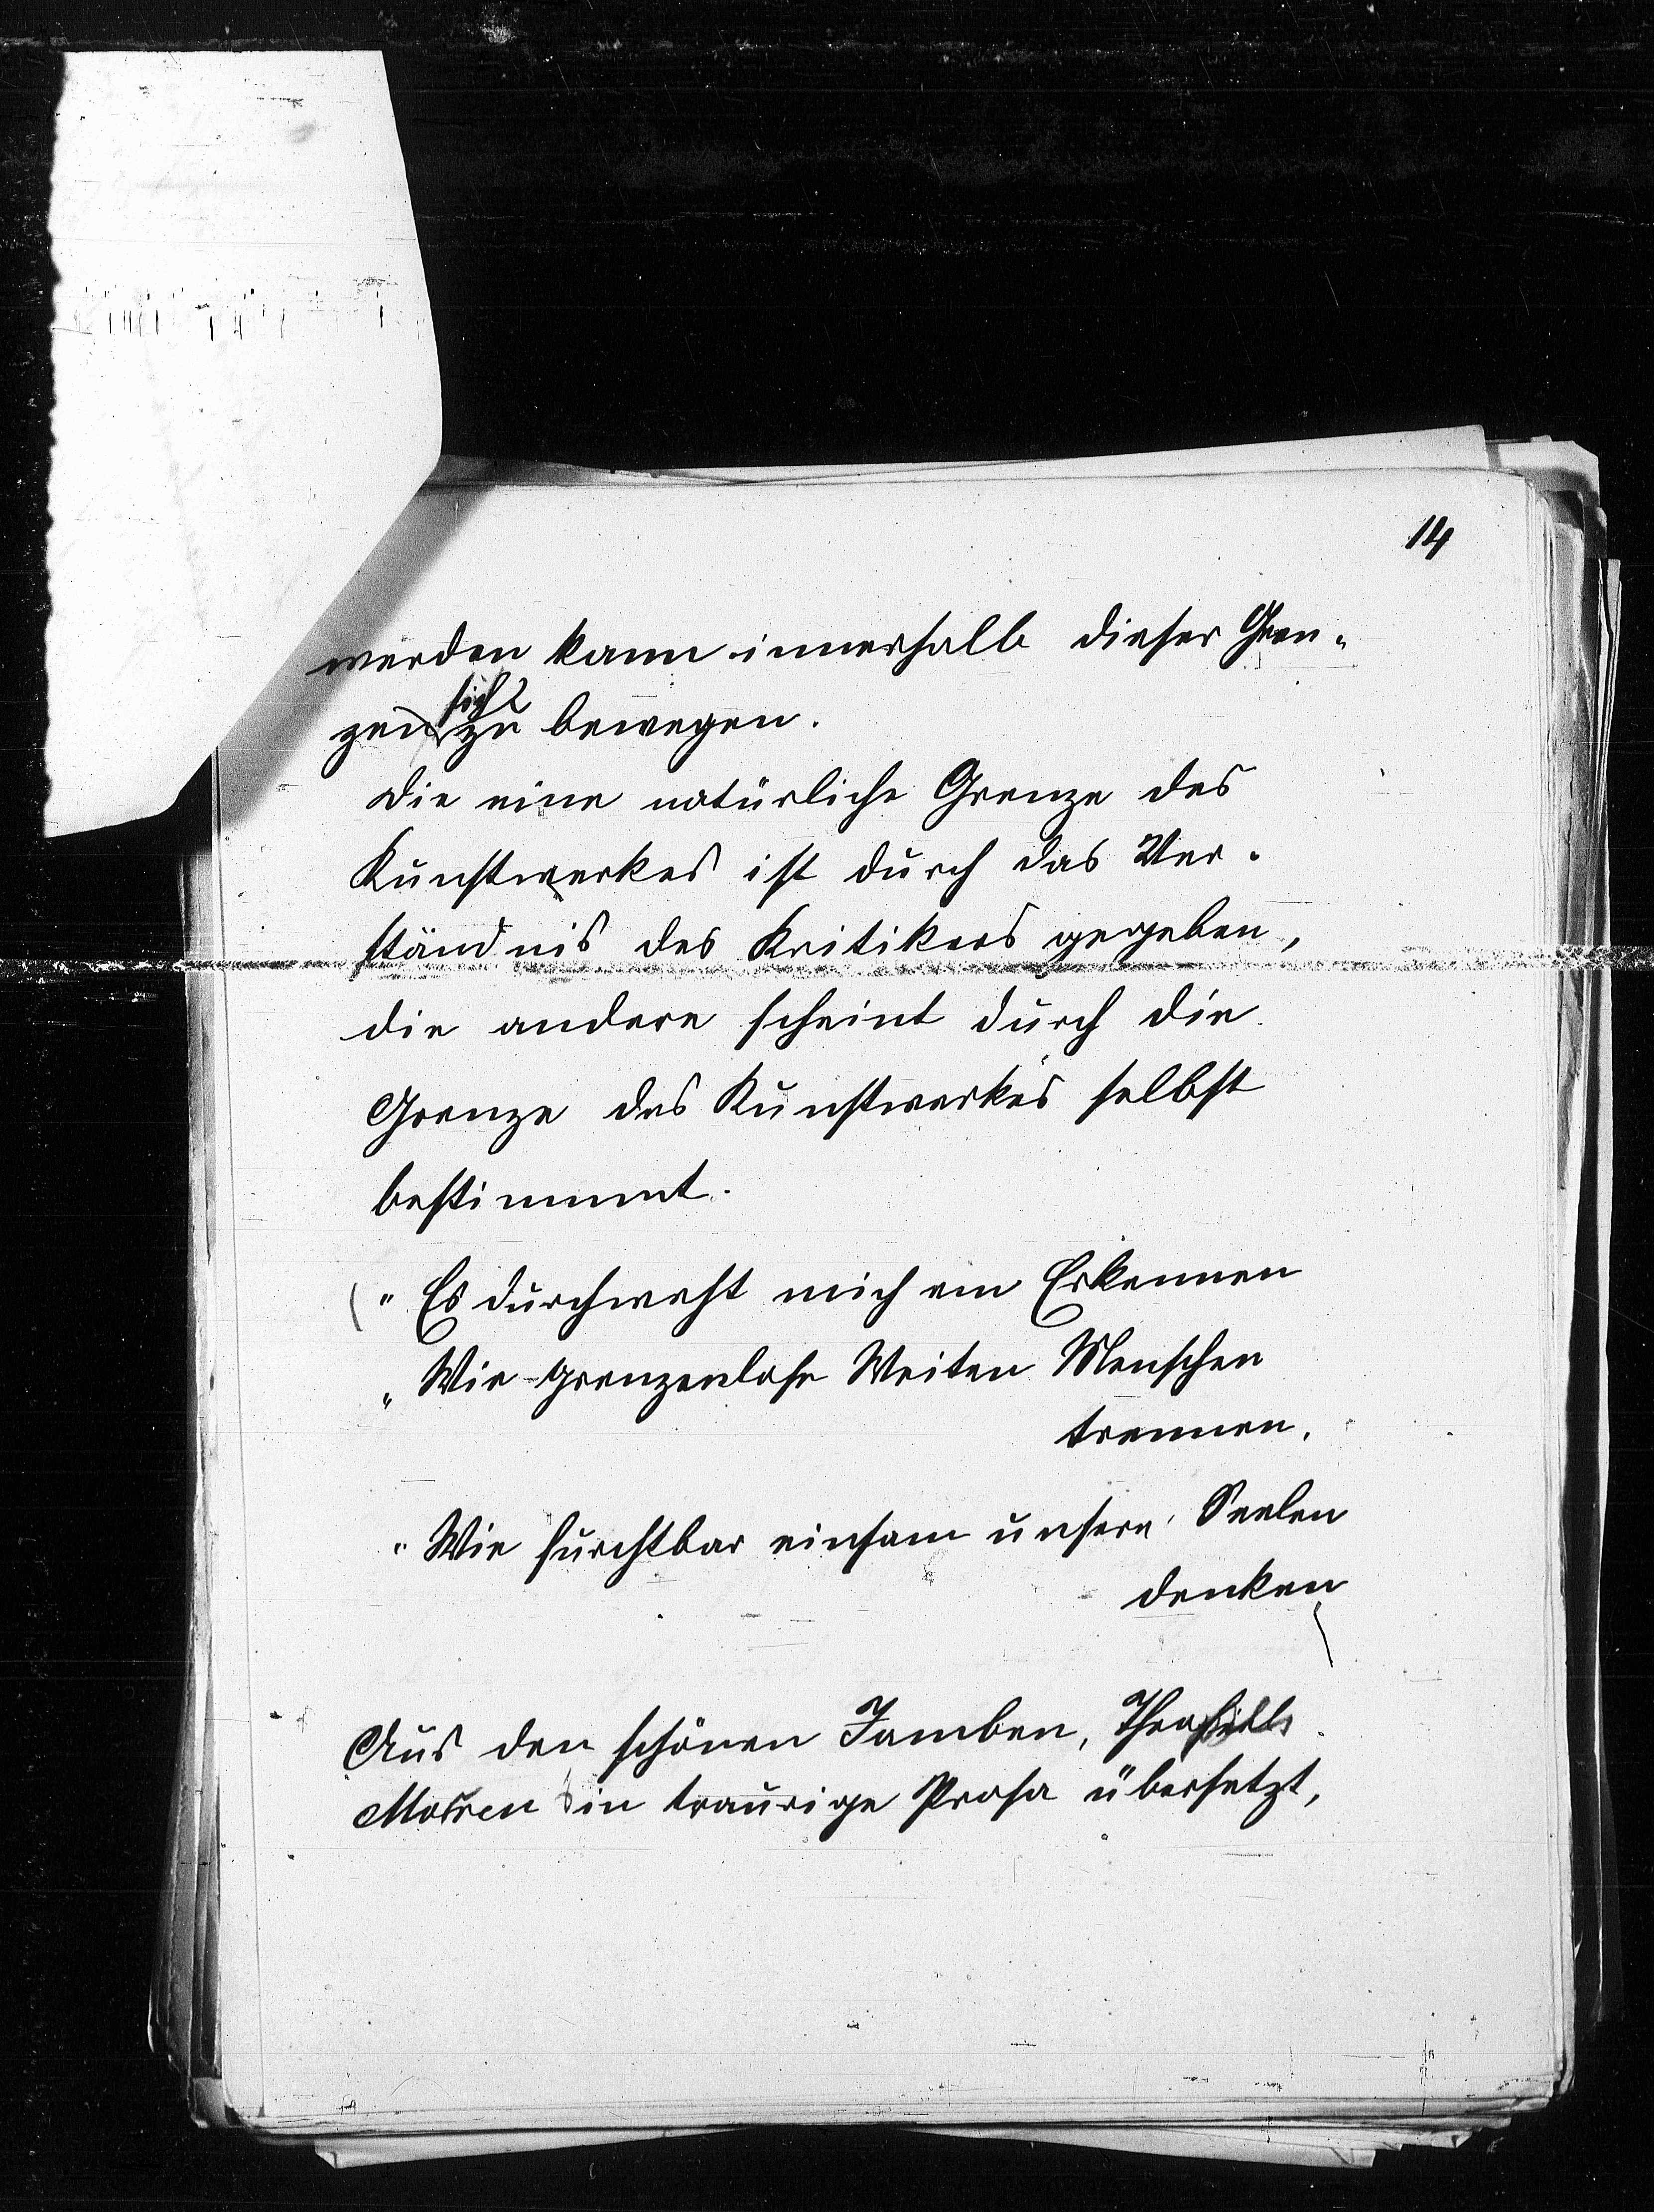 14
werden kann innerhalb dieser Gren-
zen sich zu bewegen.
Die eine natürliche Grenze des
Kunstwerkes ist durch das Ver-
ständnis des Kritikers gegeben,
die andere scheint durch die
Grenze des Kunstwerkes selbst
bestimmt.
( „ Es durchweht mich ein Erkennen
„ Wie grenzenlose Weiten Menschen
trennen,
„ Wie furchtbar einsam unsere Seelen
denken )
Aus den schönen Jamben, Theofills
Morren in traurige Prosa übersetzt,